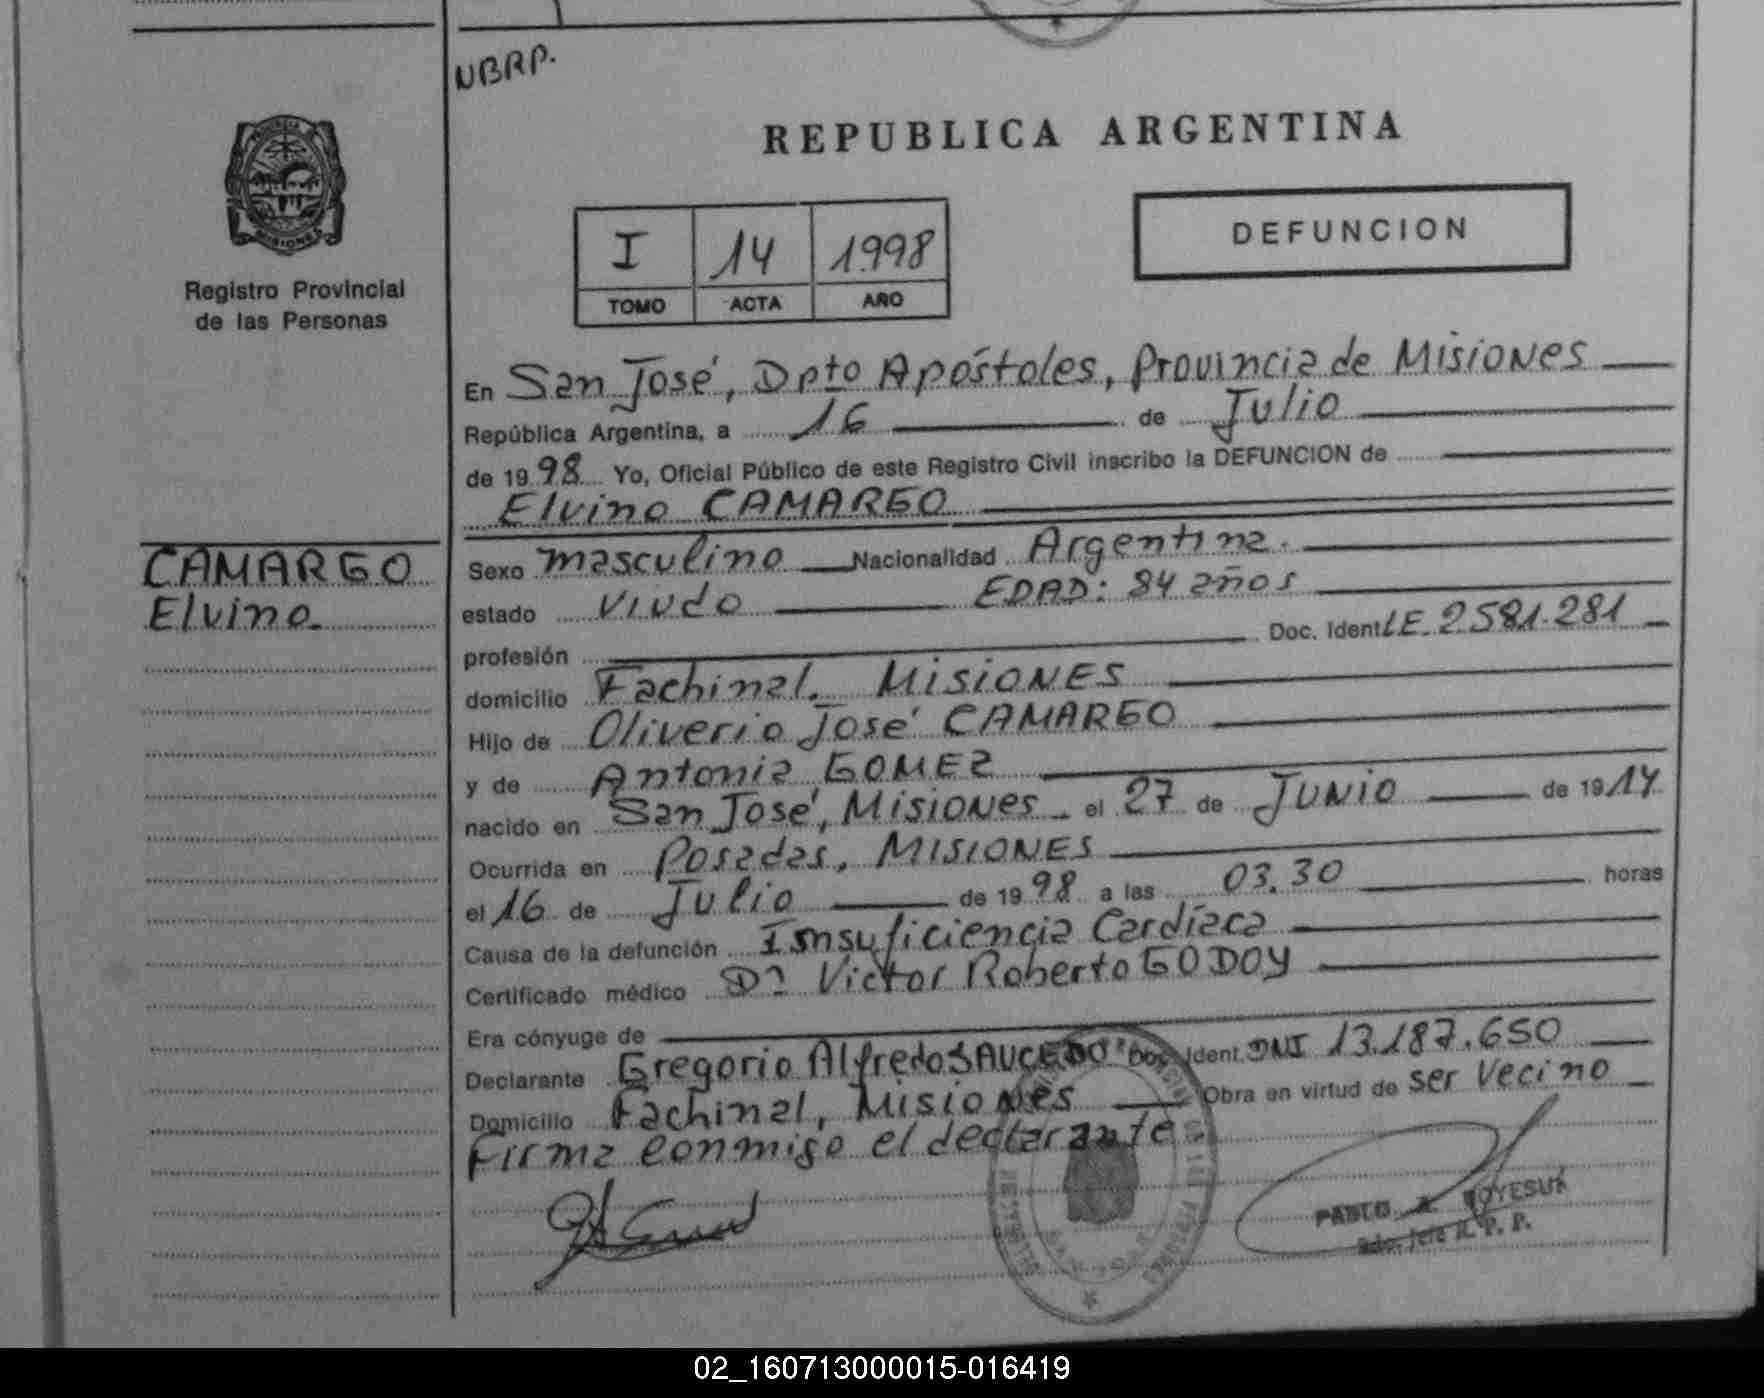 UBRP.
REPUBLICA ARGENTINA
PROVINCIA DE
MISIONES
Registro Provincial
de las Personas
I 14 1998
TOMO ACTA AÑO
DEFUNCION
En San José, Dpto Apóstoles, Provincia de Misiones
República Argentina, a 16 de Julio
de 1998 Yo, Oficial Público de este Registro Civil inscribo la DEFUNCION de
Elvino CAMARGO
CAMARGO
Elvino
Sexo masculino Nacionalidad Argentina.
estado viudo EDAD: 84 años
profesión Doc. Ident LE. 2581.281
domicilio Fachinal. MISIONES
Hijo de Oliverio José CAMARGO
y de Antonia GOMEZ
nacido en San José, Misiones el 27 de JUNIO de 1914
Ocurrida en Posadas, MISIONES
el 16 de Julio de 1998 a las 03.30 horas
Causa de la defunción Insuficiencia Cardíaca
Certificado médico Dr Victor Roberto GODOY
Era cónyuge de
Declarante Gregorio Alfredo SAUCEDO Doc. Ident. DNI 13.187.650
Domicilio Fachinal, Misiones Obra en virtud de ser vecino
Firma conmigo el declarante
PABLO A. BOYESUK
Jefe R. P. P.
02_160713000015-016419